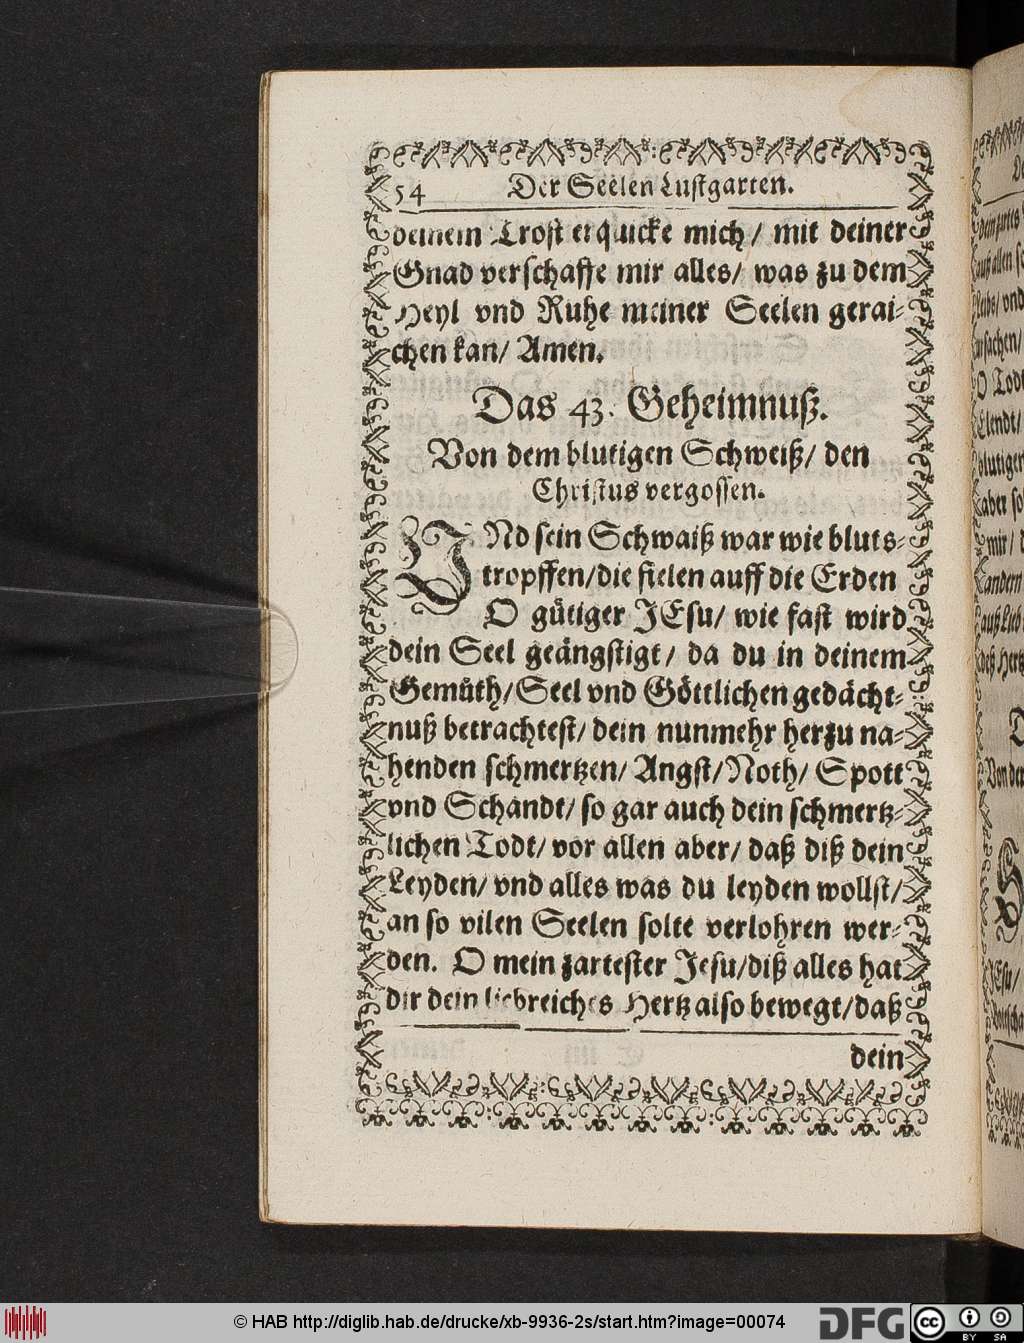 54 Der Seelen Lustgarten.
deinem Trost erquicke mich/ mit deiner
Gnad verschaffe mir alles/ was zu dem
Heyl vnd Ruhe meiner Seelen gerai-
chen kan/ Amen.
Das 43. Geheimnuß.
Von dem blutigen Schweiß/ den
Christus vergossen.
VNd sein Schwaiß war wie bluts-
tropffen/die fielen auff die Erden
O gütiger JEsu/ wie fast wird
dein Seel geängstigt/ da du in deinem
Gemüth/Seel vnd Göttlichen gedächt-
nuß betrachtest/ dein nunmehr herzu na-
henden schmertzen/ Angst/Noth/ Spott
vnd Schandt/ so gar auch dein schmertz-
lichen Todt/ vor allen aber/ daß diß dein
Leyden/ vnd alles was du leyden wollst/
an so vilen Seelen solte verlohren wer-
den. O mein zartester Jesu/diß alles hat
dir dein liebreiches Hertz also bewegt/daß
dein
© HAB http://diglib.hab.de/drucke/xb-9936-2s/start.htm?image=00074
DFG
cc
BY SA